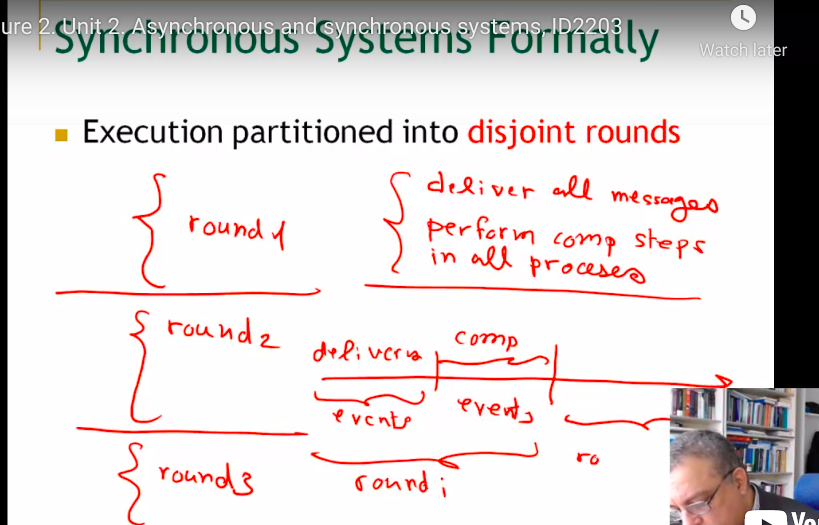 ure 2. Unit.2. Asynchronous and synchronous systems, ID2203
Synchronous Systems Formally
Watch later
Execution partitioned into disjoint rounds
round 1
deliver all messages
perform comp steps
in all proceses
round 2
delivers
comp
events
events
round i
ro
round 3